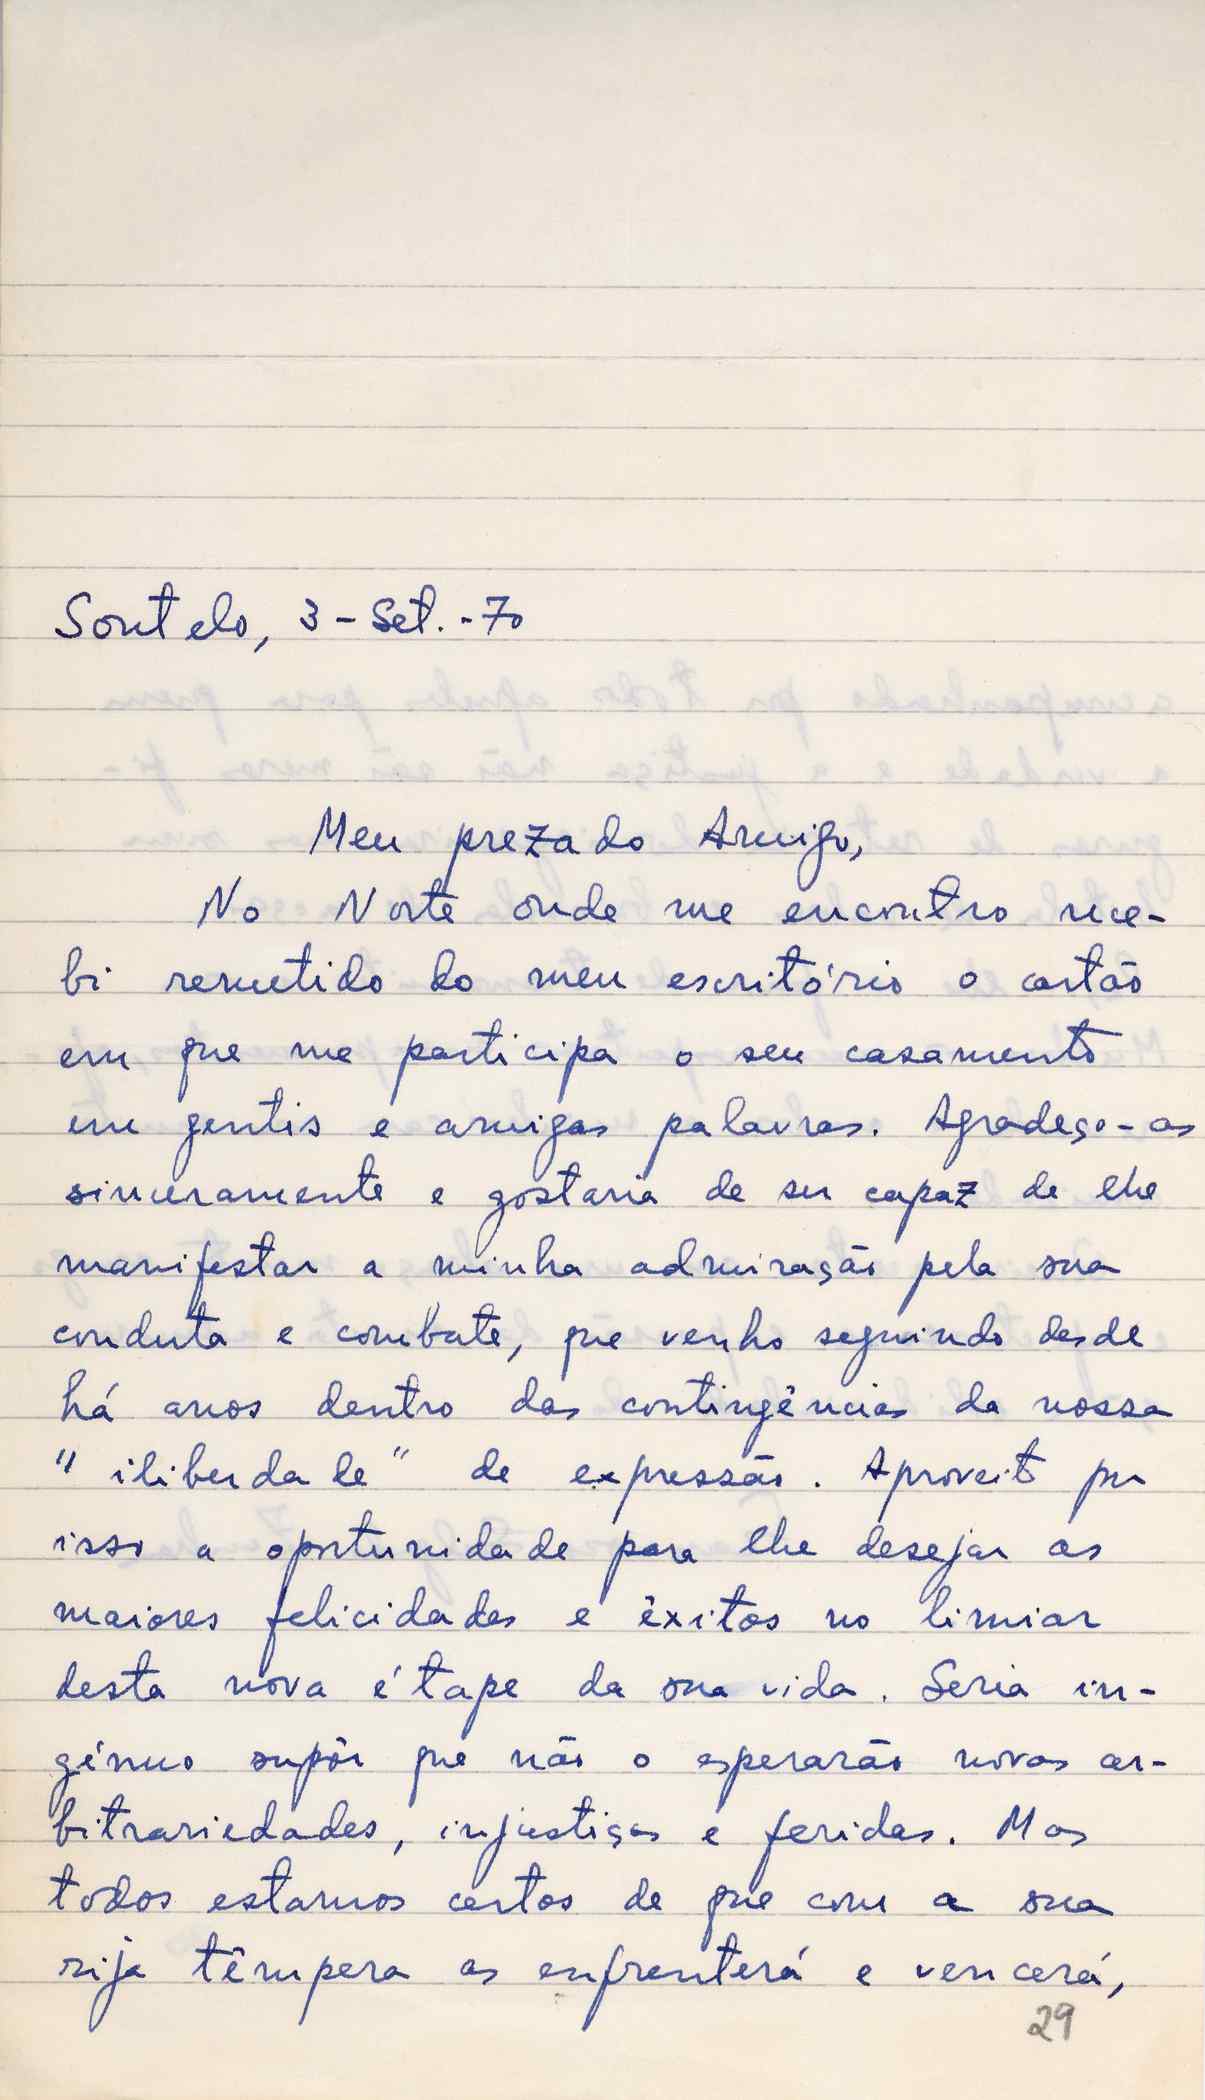 Soutelo, 3-Set.-70
Meu prezado Amigo,
No Norte onde me encontro rece-
bi remetido do meu escritório o cartão
em que me participa o seu casamento
em gentis e amigas palavras. Agradeço-as
sinceramente e gostaria de ser capaz de lhe
manifestar a minha admiração pela sua
conduta e combate, que venho seguindo desde
há anos dentro das contingências da nossa
"iliberdade" de expressão. Aproveito por
isso a oportunidade para lhe desejar as
maiores felicidades e êxitos no limiar
desta nova étape da sua vida. Seria in-
génuo supôr que não o esperarão novas ar-
bitrariedades, injustiças e feridas. Mas
todos estamos certos de que com a sua
rija têmpera as enfrenterá e vencerá,
29